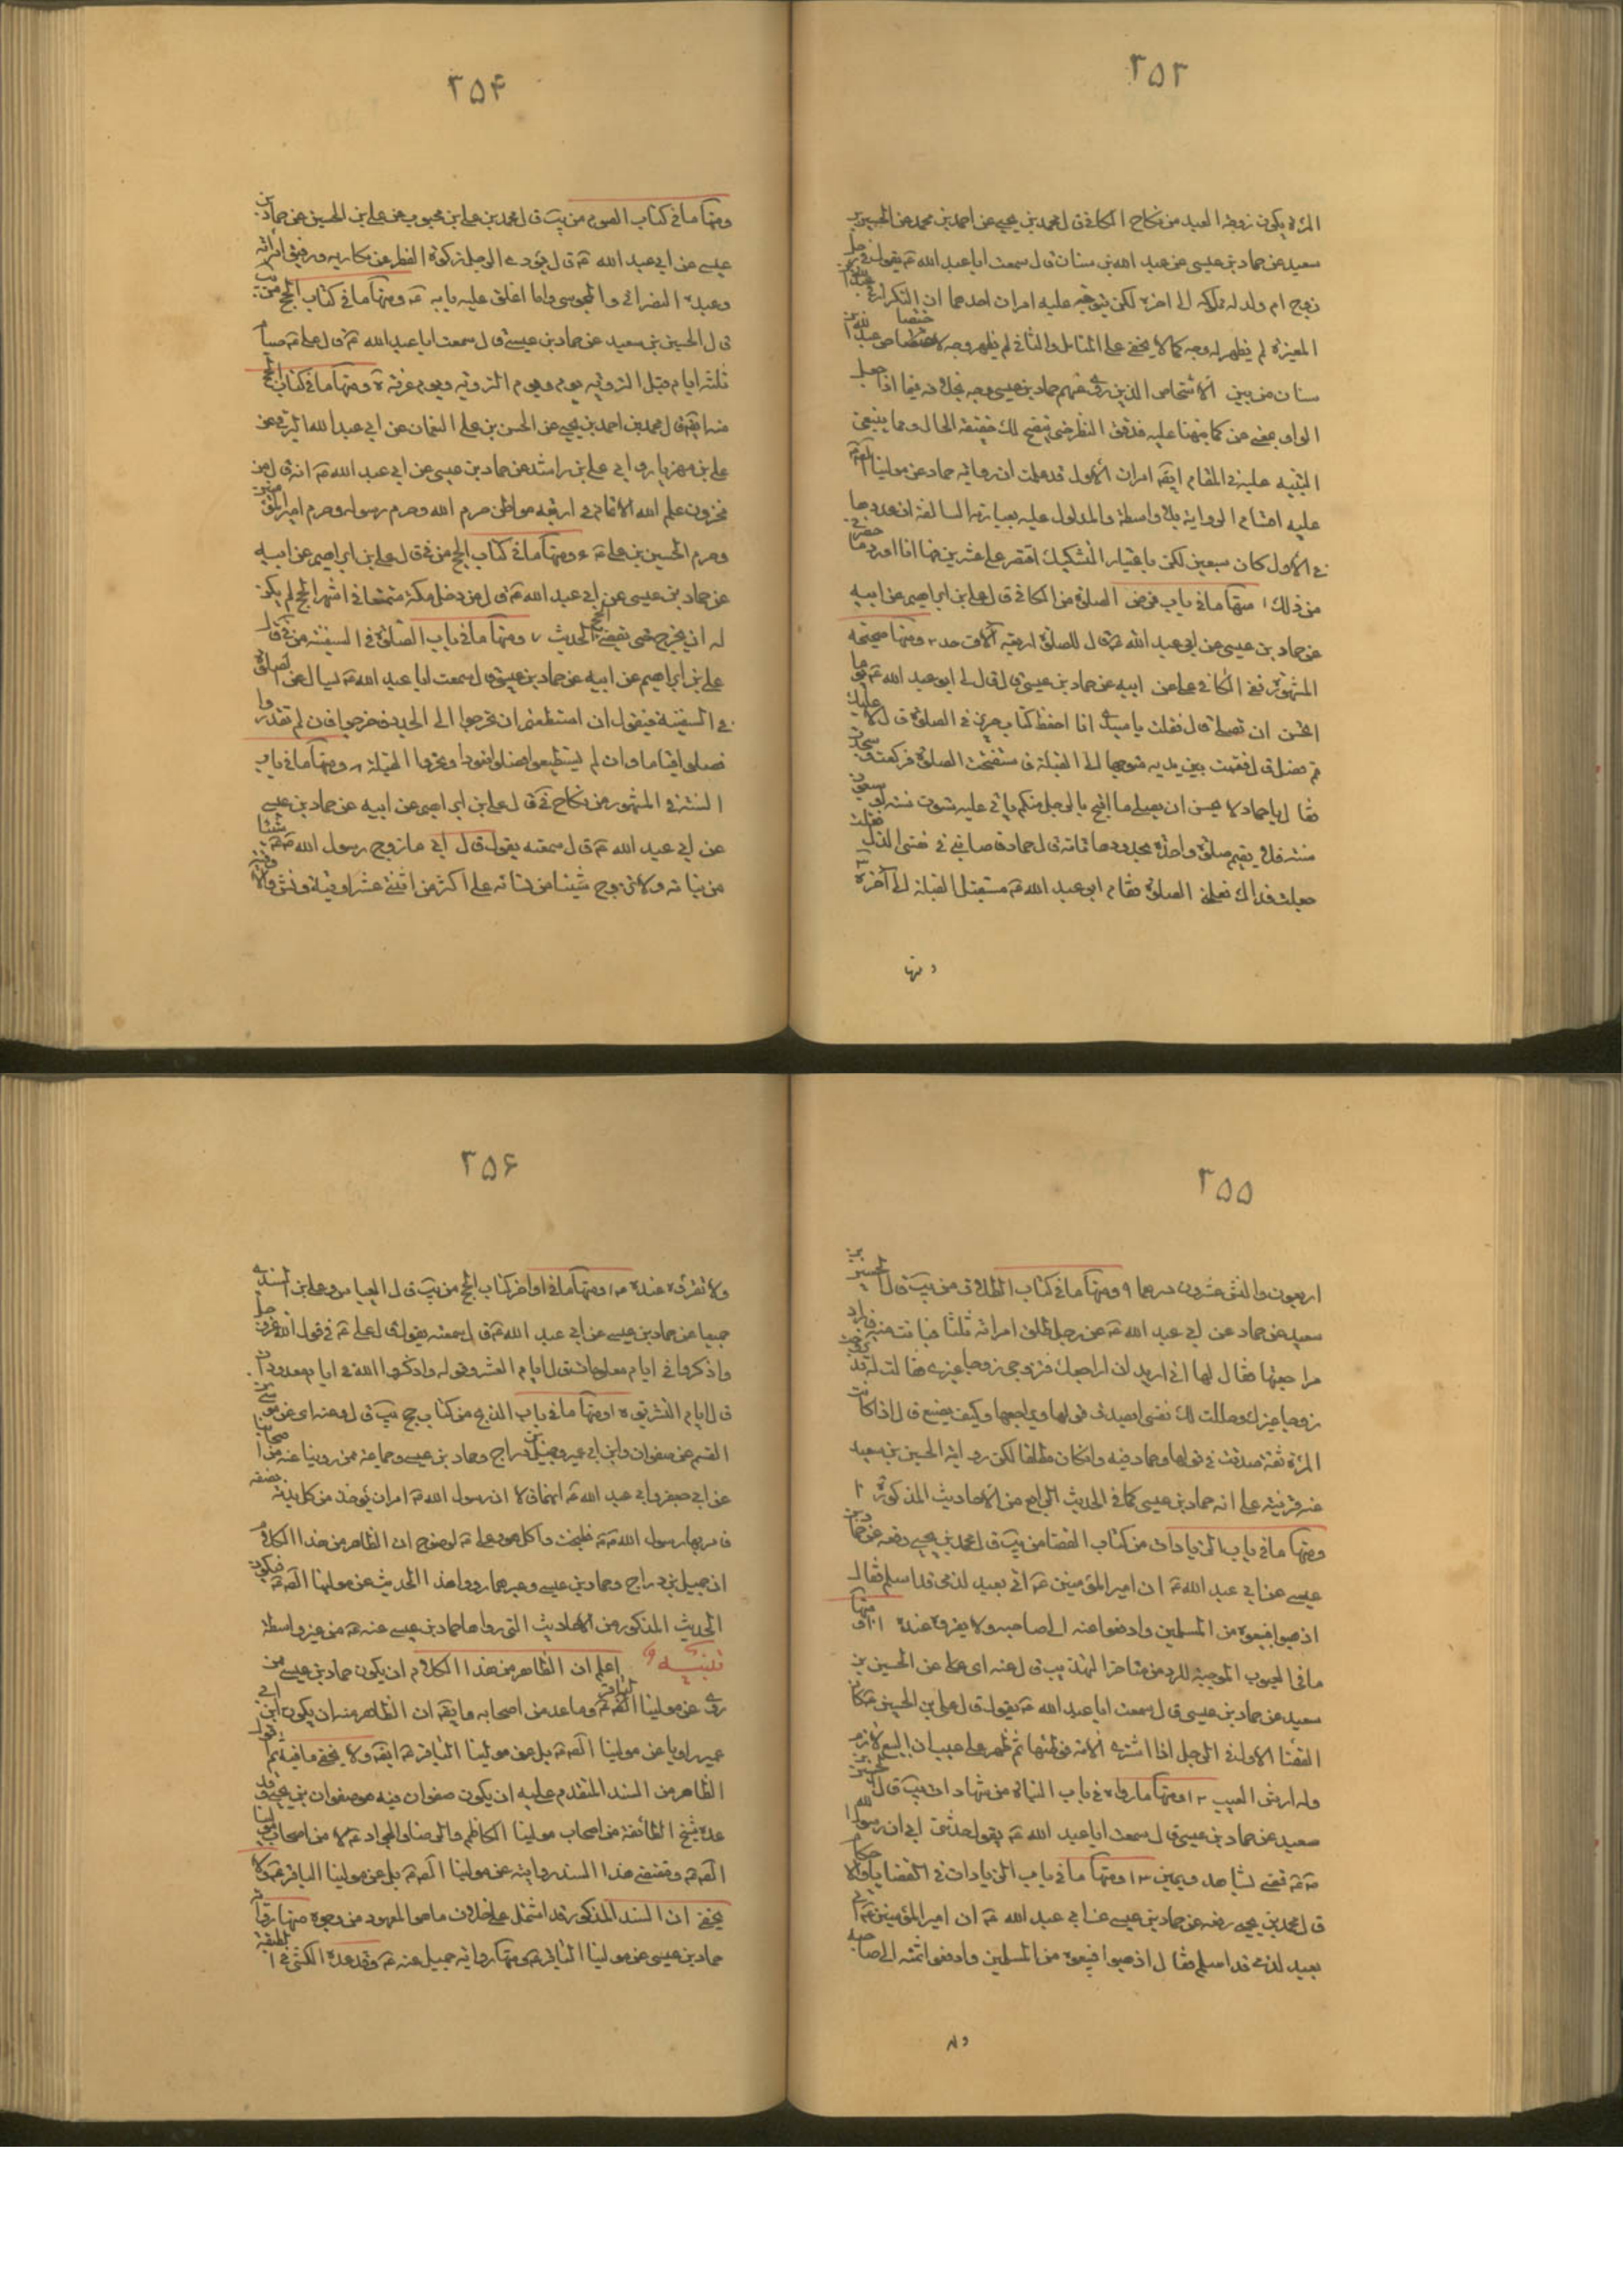 ٢٥٣
المرأة يكون زوجها العبد من نكاح الكافي قال محمد بن يحيى عن احمد بن محمد عن الحسين بن
سعيد عن حماد بن عيسى عن عبد الله بن سنان قال سمعت ابا عبد الله ع يقول في رجل
زوج ام ولد له مملوكه الى اخره لكن يتوجه عليه امران احدهما ان
لم يظهر له وجه كما لا يخفى على المتامل والثاني لم يظهر وجه لاختصاص عبد الله بن
سنان من بين الأشخاص الذين روى عنهم حماد بن عيسى وجه فيما اذا جعل
الواو بمعنى عن كما نبهنا عليه فدقق النظر حتى يتضح لك حقيقة الحال ومما ينبغي
التنبيه عليه في المقام ايضا امران الأول قد علمت ان رواية حماد عن مولينا
عليه السلام الرواية بلا واسطة والمدلول عليه بعبارته السالفة ان عدوها
في الأول كان سبعين لكن باعتبار التشكيك اقتصر على عشرين منها اذا اورد ما حضرني
من ذلك ١ منها ما في باب فرض الصلوة من الكافي قال علي بن ابراهيم عن ابيه
عن حماد بن عيسى عن ابي عبد الله ع قال للصلوة اربعة آلاف حد ٢ ومنها صحيحته
المشهورة ففي الكافي علي عن ابيه عن حماد بن عيسى قال قال لي ابو عبد الله ع يوما
اتحسن ان تصلي قال فقلت يا سيدي انا احفظ كتاب حريز في الصلوة قال لا عليك
قم فصل قال فقمت بين يديه متوجها الى القبلة فاستفتحت الصلوة فركعت وسجدت
فقال يا حماد لا تحسن ان تصلي ما اقبح بالرجل منكم ياتي عليه ستون سنة او سبعون
سنة فلا يقيم صلوة واحدة بحدودها تامة قال حماد فاصابني في نفسي الذل فقلت
جعلت فداك فعلمني الصلوة فقام ابو عبد الله ع مستقبل القبلة الى آخره ٣
ومنها
٢٥٤
ومنها ما في كتاب الصوم من يب قال محمد بن علي بن محبوب عن علي بن الحسين عن حماد بن
عيسى عن ابي عبد الله ع قال يؤدي الرجل زكوة الفطر عن مكاتبه ورقيق امرأته
وعبده النصراني والمجوسي وما اغلق عليه بابه ومنها ما في كتاب الحج من يب
قال الحسين بن سعيد عن حماد بن عيسى قال سمعت ابا عبد الله ع قال علي ع صيام
ثلثة ايام قبل التروية بيوم ويوم التروية ويوم عرفة ومنها ما في كتاب الحج
منه ايضا قال محمد بن احمد بن يحيى عن الحسن بن علي النعمان عن ابي عبد الله البرقي عن
علي بن مهزيار وابي علي بن راشد عن حماد بن عيسى عن ابي عبد الله ع انه قال من
مخزون علم الله الاتمام في اربعة مواطن حرم الله وحرم رسوله وحرم امير المؤمنين
وحرم الحسين بن علي ع ومنها ما في كتاب الحج من في قال علي بن ابراهيم عن ابيه
عن حماد بن عيسى عن ابي عبد الله ع قال من دخل مكة متمتعا في اشهر الحج لم يكن
له ان يخرج حتى يقضي الحج الحديث ٧ ومنها ما في باب الصلوة في السفينة من في قال
علي بن ابراهيم عن ابيه عن حماد بن عيسى قال سمعت ابا عبد الله ع يسال عن الصلوة
في السفينة فيقول ان استطعتم ان تخرجوا الى الجدد فاخرجوا فان لم تقدروا
فصلوا قياما وان لم تستطيعوا فصلوا قعودا وتحروا القبلة ٨ ومنها ما في باب
السنة في المهور من نكاح في قال علي بن ابراهيم عن ابيه عن حماد بن عيسى
عن ابي عبد الله ع قال سمعته يقول قال ابي ما زوج رسول الله ص شيئا
من بناته ولا تزوج شيئا من نسائه على اكثر من اثنتي عشر اوقية ونش والاوقية
٢٥٥
اربعون والنش عشرون درهما ٩ ومنها ما في كتاب الطلاق من يب قال الحسين بن
سعيد عن حماد عن ابي عبد الله ع عن رجل طلق امرأته ثلثا فبانت منه فاراد
مراجعتها فقال لها اني اريد ان اراجعك فتزوجي زوجا غيري فقالت له قد تزوجت
زوجا غيرك وحللت لك نفسي ايصدق قولها ويراجعها وكيف يصنع قال اذا كانت
المرأة ثقة صدقت في قولها وحماد فيه وان كان مطلقا لكن رواية الحسين بن سعيد
عنه قرينة على انه حماد بن عيسى كما في الحديث الرابع من الأحاديث المذكورة ١٠
ومنها ما في باب الزيادات من كتاب القضا من يب قال محمد بن يحيى رفعه عن حماد بن
عيسى عن ابي عبد الله ع ان امير المؤمنين ع اتي بعبد لذمي قد اسلم فقال
اذهبوا فبيعوه من المسلمين وادفعوا ثمنه الى صاحبه ولا تقروه عنده ١١ ومنها
ما في العيوب الموجبة للرد من متاجر التهذيب قال عنه اى علي عن الحسين بن
سعيد عن حماد بن عيسى قال سمعت ابا عبد الله ع يقول قال علي بن الحسين ع كان
القضا الاول في الرجل اذا اشترى الأمة فوطئها ثم ظهر على عيب ان البيع لازم
وله ارش العيب ١٢ ومنها ما رواه في باب البينات من شهادات يب قال الحسين بن
سعيد عن حماد بن عيسى قال سمعت ابا عبد الله ع يقول حدثني ابي ان رسول الله
ص قضى بشاهد ويمين ١٣ ومنها ما في باب الزيادات في القضايا والاحكام
قال محمد بن يحيى رفعه عن حماد بن عيسى عن ابي عبد الله ع ان امير المؤمنين ع اتي
بعبد لذمي قد اسلم فقال اذهبوا فبيعوه من المسلمين وادفعوا ثمنه الى صاحبه
ولا
٢٥٦
ولا تقروه عنده ١٤ ومنها ما في اواخر كتاب الحج من يب قال العباس وعلي بن السندي
جميعا عن حماد بن عيسى عن ابي عبد الله ع قال سمعته يقول قال علي ع في قول الله عز وجل
واذكروا في ايام معلومات قال ايام العشر وقوله واذكروا الله في ايام معدودات
قال ايام التشريق ١٥ ومنها ما في باب الذبح من كتاب حج يب قال وعنه اى عن موسى بن
القسم عن صفوان وابن ابي عمير وجميل بن دراج وحماد بن عيسى وجماعة ممن روينا عنه من اصحابنا
عن ابي جعفر وابي عبد الله ع انهما قالا ان رسول الله ص امر ان يؤخذ من كل بدنة بضعة
فامر بها رسول الله ص فطبخت واكل هو وعلي ع لوضوح ان الظاهر من هذا الكلام
ان جميل بن دراج وحماد بن عيسى وغيرهما رووا هذا الحديث عن مولينا الصادق فيكون
الحديث المذكور من الأحاديث التي رواها حماد بن عيسى عنه ع من غير واسطة
تنبيه اعلم ان الظاهر من هذا الكلام ان يكون حماد بن عيسى ممن
روى عن مولينا الباقر ع وما عد من اصحابه وايضا ان الظاهر منه ان يكون ابن ابي
عمير راويا عن مولينا الصادق ع بل عن مولينا الباقر ع ايضا ولا يخفى ما فيه ثم نقول
الظاهر من السند المتقدم عليه ان يكون صفوان فيه هو صفوان بن يحيى وقد
عده شيخ الطائفة من اصحاب مولينا الكاظم والرضا والجواد ع لا من اصحاب مولينا
الصادق ع ومقتضى هذا السند روايته عن مولينا الصادق ع بل عن مولينا الباقر ع ولا
يخفى ان السند المذكور قد اشتمل على خلاف ما هو المعهود من وجوه منها رواية
حماد بن عيسى عن مولينا الباقر ع ومنها رواية جميل عنه ع وقد عده الكشي